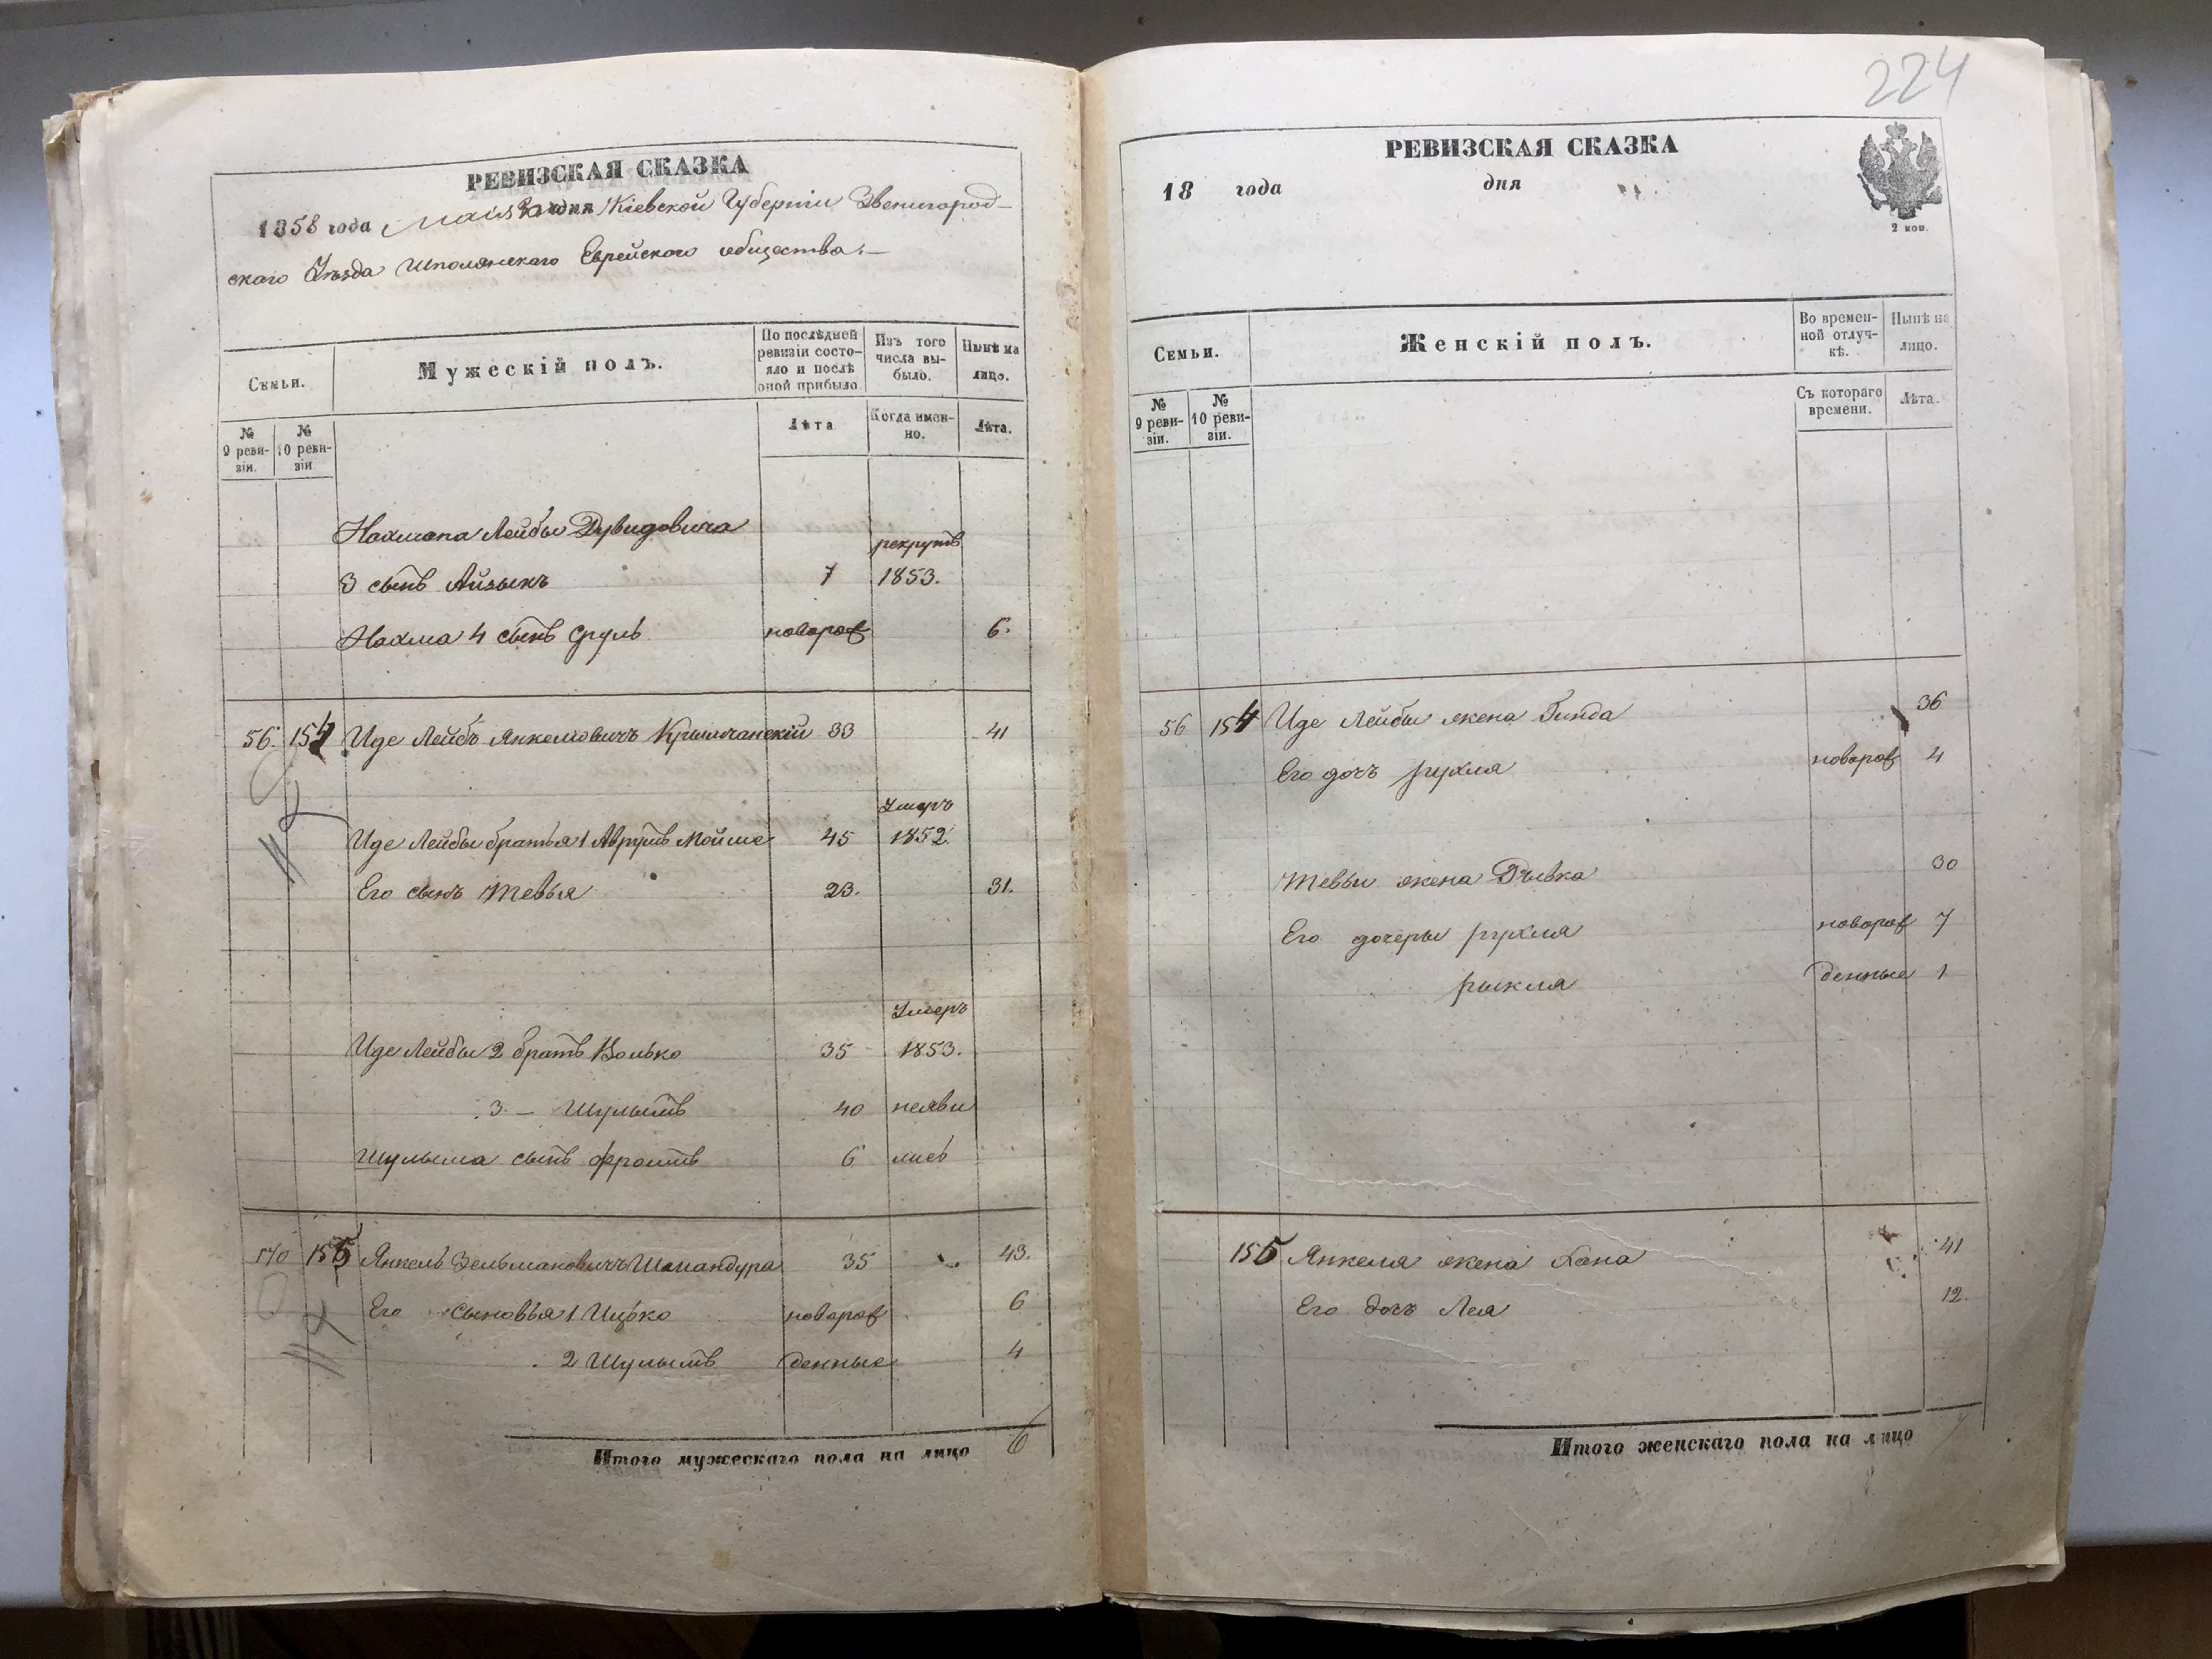 224
РЕВИЗСКАЯ СКАЗКА
1858 года Мая дня Кіевской Губерніи Звенигород-
скаго Уѣзда Шполянскаго Еврейского общества.
Семьи.
Мужескій полъ.
По послѣдней ревизіи состояло и послѣ оной прибыло
Изъ того числа выбыло.
Нынѣ на лицо.
№ 9 ревизіи.
№ 10 ревизіи
Лѣта
Когда именно.
Лѣта.
Нахмана Лейбы Дувидовича
рекрутъ
3 сынъ Айзыкъ 7 1853.
Нахма 4 сынъ Сруль новорож 6.
56. 154 Иде Лейбъ Янкелиовичъ Крымчанскій 33 41
Умеръ
Иде Лейбы братья 1 Аврумъ Мойше 45 1852.
Его сынъ Тевья 23. 31.
Умеръ
Иде Лейбы 2 братъ Волько 35 1853.
3 — Шулымъ 40 неяви
Шулыма сынъ Фроимъ 6 лись
170 155 Янкель Зельмановичъ Шамандура 35 43.
Его сыновья 1 Ицько новорож 6
2 Шулымъ денные 4
Итого мужескаго пола на лицо 6
РЕВИЗСКАЯ СКАЗКА
18 года дня
2 коп.
Семьи.
Женскій полъ.
Во временной отлучкѣ.
Нынѣ на лицо.
№ 9 ревизіи.
№ 10 ревизіи.
Съ котораго времени.
Лѣта.
56 154 Иде Лейбы жена Гинда 36
Его дочъ рухля новорож 4
Тевьи жена Рывка 30
Его дочеры рухля новорож 7
рыкля денные 1
155 Янкеля жена Хана 41
Его дочъ Лея 12.
Итого женскаго пола на лицо